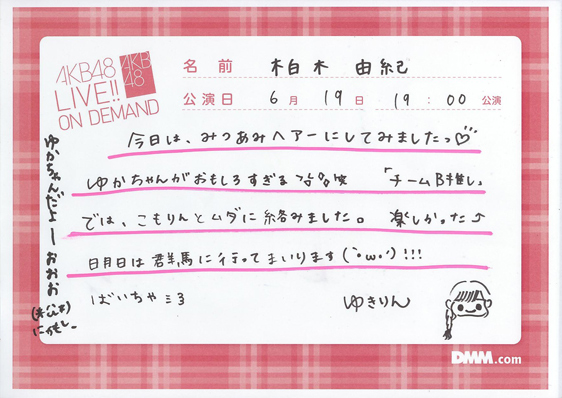 AKB48
LIVE!!
ON DEMAND
AKB
48
名前 柏木 由紀
公演日 6月 19日 19:00 公演
今日は、みつあみヘアーにしてみましたっ♡
ゆかちゃんがおもしろすぎる 笑 「チームB推し」
では、こもりんとムダに絡みました。 楽しかった♪
日月日は群馬に行ってまいります(`・ω・´)!!!
ばいちゃ ゆきりん
ゆかちゃんだよーおぉぉ
DMM.com